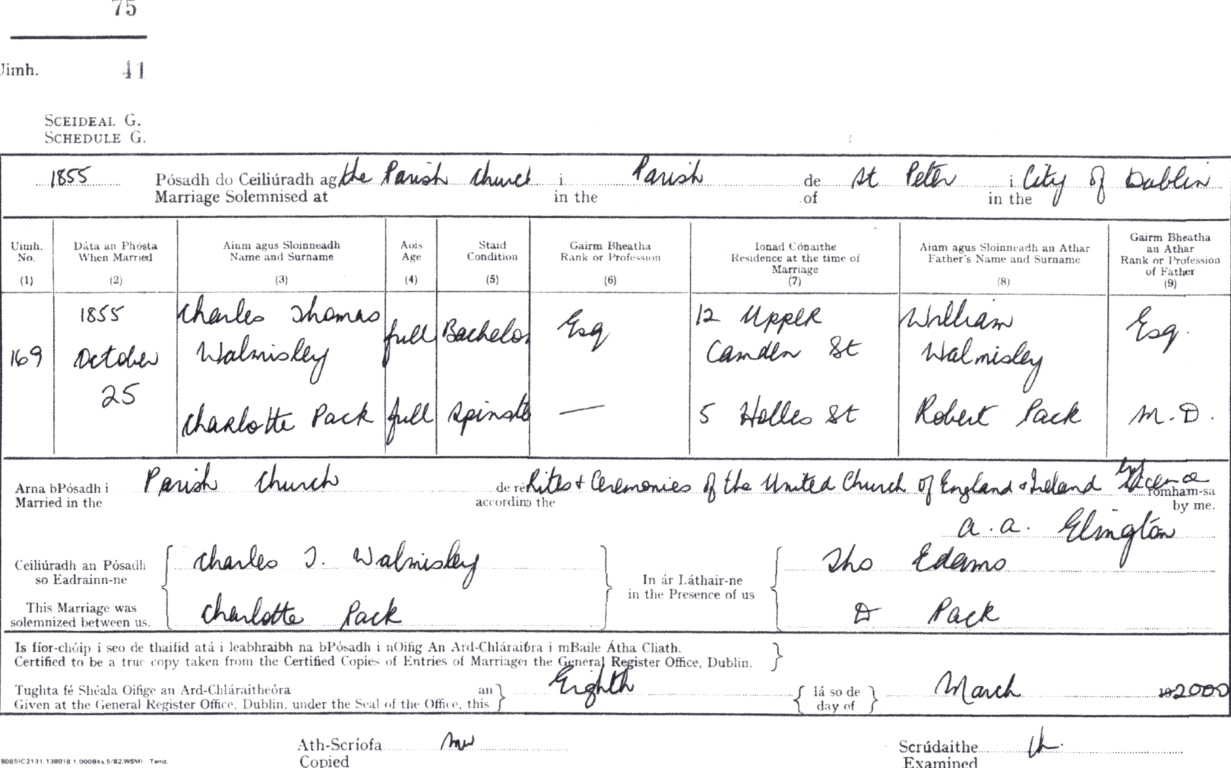 75
Uimh. 41
SCEIDEAL G.
SCHEDULE G.
1855 Pósadh do Ceiliúradh ag the Parish Church i Parish de St Peter i City of Dublin
Marriage Solemnised at in the of in the
Uimh. Dáta an Phósta Ainm agus Sloinneadh Aois Staid Gairm Bheatha Ionad Cónaithe Ainm agus Sloinneadh an Athar Gairm Bheatha an Athar
No. When Married Name and Surname Age Condition Rank or Profession Residence at the time of Marriage Father's Name and Surname Rank or Profession of Father
(1) (2) (3) (4) (5) (6) (7) (8) (9)
169 1855 October 25 Charles Thomas Walmisley full Bachelor Esq 12 Upper Camden St William Walmisley Esq.
Charlotte Pack full Spinste — 5 Holles St Robert Pack M.D.
Arna bPósadh i Parish Church de réir Rites & Ceremonies of the United Church of England & Ireland by Licence romham-sa
Married in the according the by me.
a. a. Elington
Ceiliúradh an Pósadh so Eadrainn-ne Charles T. Walmisley In ár Láthair-ne Tho Edams
This Marriage was solemnized between us. Charlotte Pack in the Presence of us D Pack
Is fíor-chóip i seo de thaifid atá i leabhraibh na bPósadh i nOifig An Ard-Chláraitheóra i mBaile Átha Cliath.
Certified to be a true copy taken from the Certified Copies of Entries of Marriages the General Register Office, Dublin.
Tughta fé Shéala Oifige an Ard-Chláraitheóra an Eighth lá so de March 2000
Given at the General Register Office, Dublin, under the Seal of the Office, this day of
Ath-Scríofa Scrúdaithe
Copied Examined